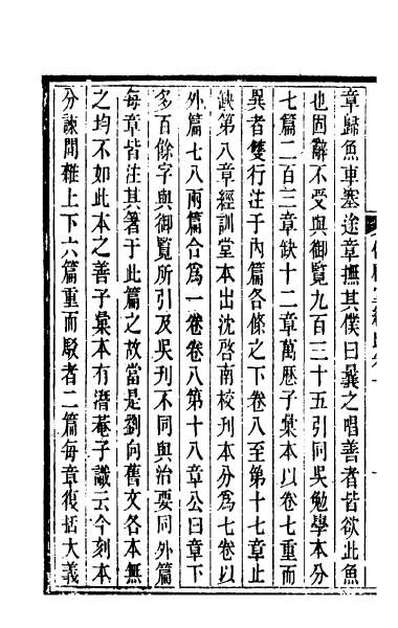 章歸魚車塞途章撫其僕曰曩之唱善者皆欲此魚
也固辭不受與御覽九百三十五引同吳勉學本分
七篇二百三章缺十二章萬歷子彙本以卷七重而
異者雙行注于內篇各條之下卷八至第十七章止
缺第八章經訓堂本出沈啓南校刋本分爲七卷以
外篇七八兩篇合爲一卷卷八第十八章公曰章下
多百餘字與御覽所引及吳刋不同與治要同外篇
每章皆注其箸于此篇之故當是劉向舊文各本無
之均不如此本之善子彙本有潛菴子識云今刻本
分諫問雜上下六篇重而駁者二篇每章復括大義